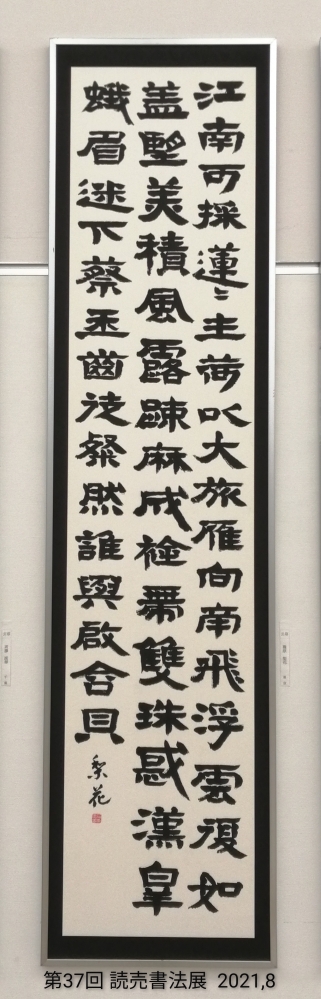 江南可採蓮〻生荷以大旅雁向南飛浮雲復如
盖望美積風露踈麻成襟帶雙珠惑漢皋
蛾眉迷下蔡玉齒徒粲然誰與啟含貝
梨花
第37回 読売書法展 2021,8